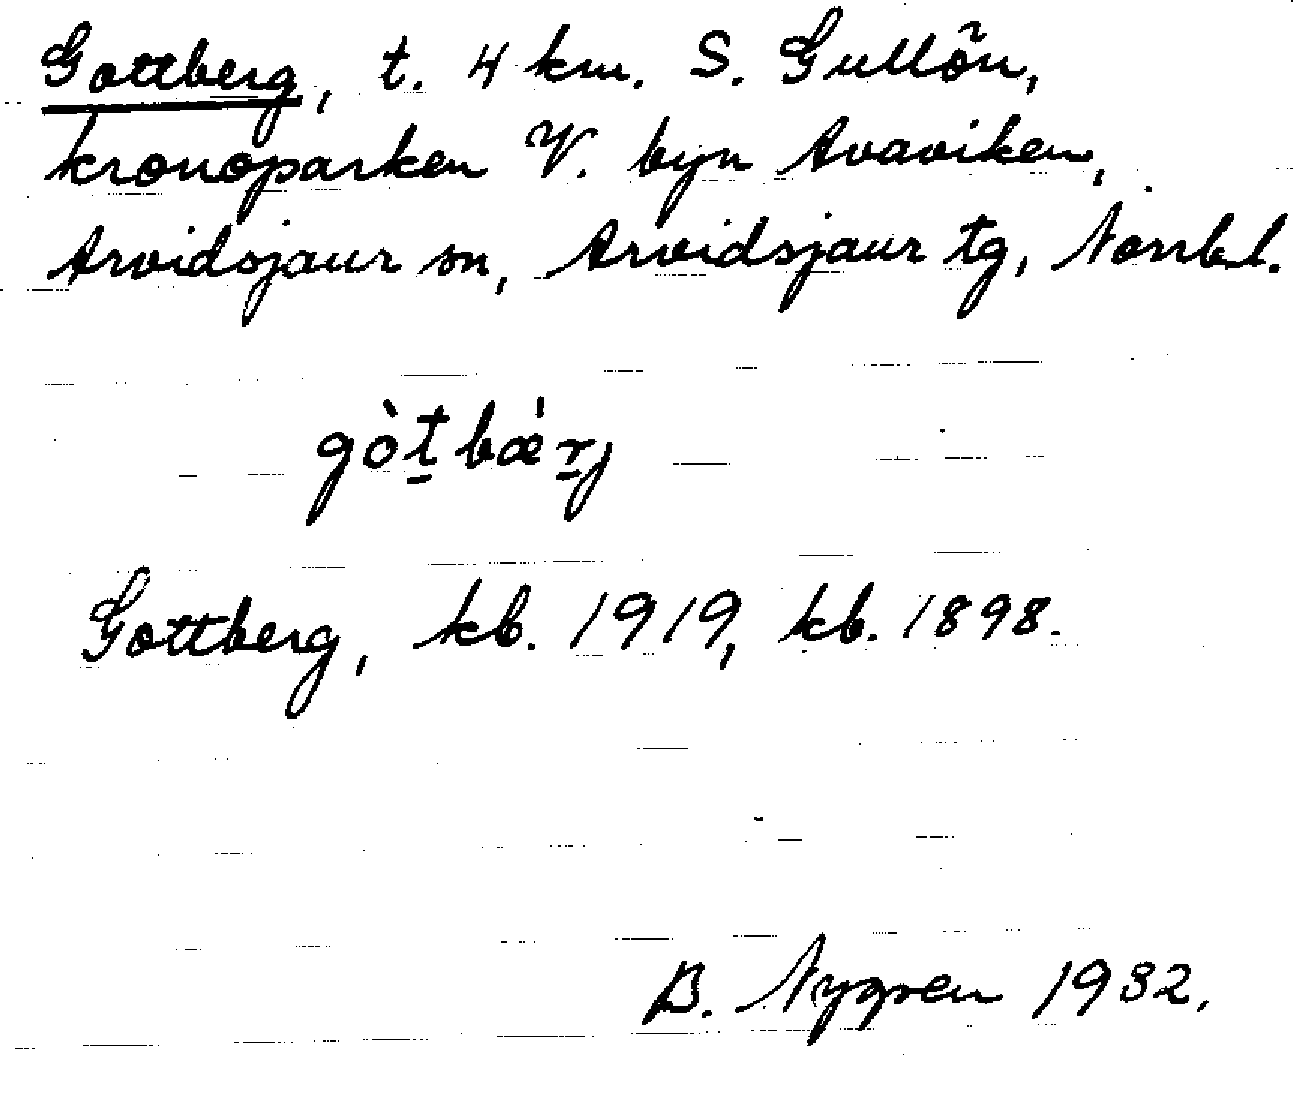 Gottberg, t. 4 km. S. Gullön,
kronoparken V. byn Avaviken,
Arvidsjaur sn, Arvidsjaur tg, Norrb.l.
gòt̠bæ̍r̠j
Gottberg, kb. 1919, kb. 1898.
B. Nygren 1932.